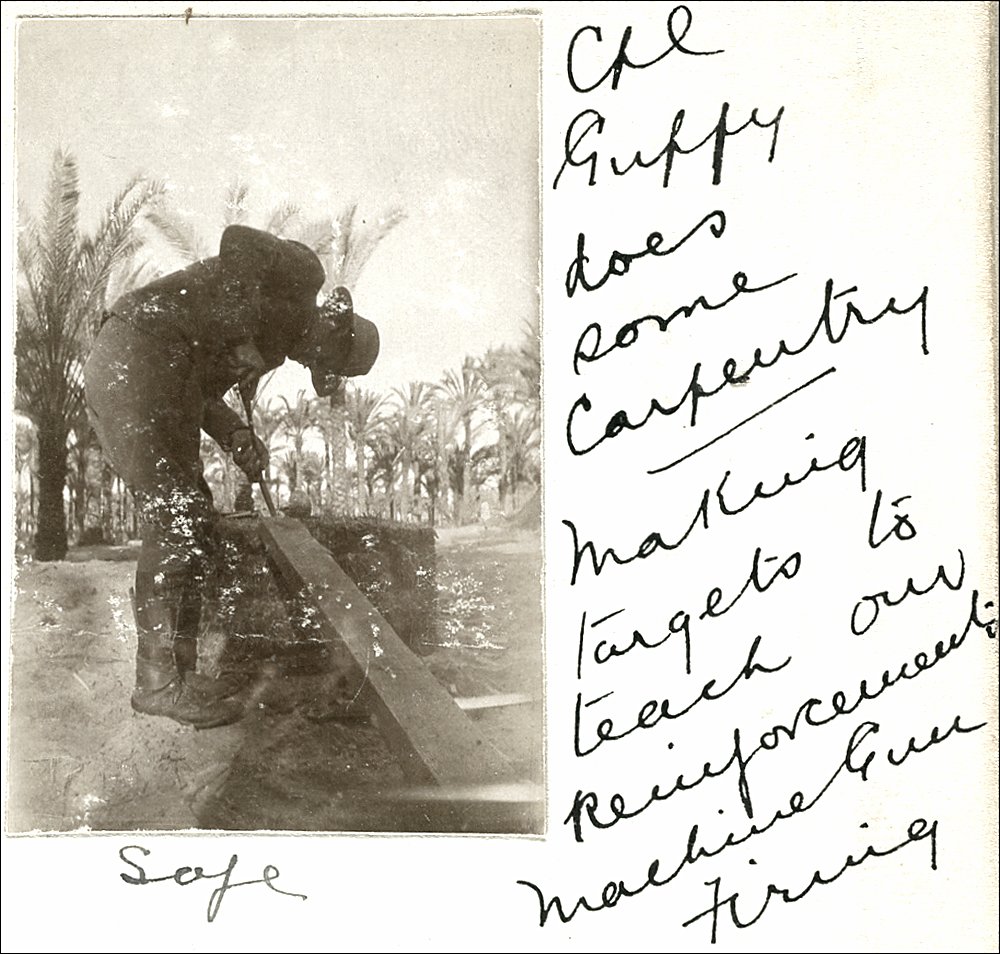 Cpl
Guppy
does
some
Carpentry
Making
targets to
teach our
Reinforcements
Machine Gun
Firing
Safe